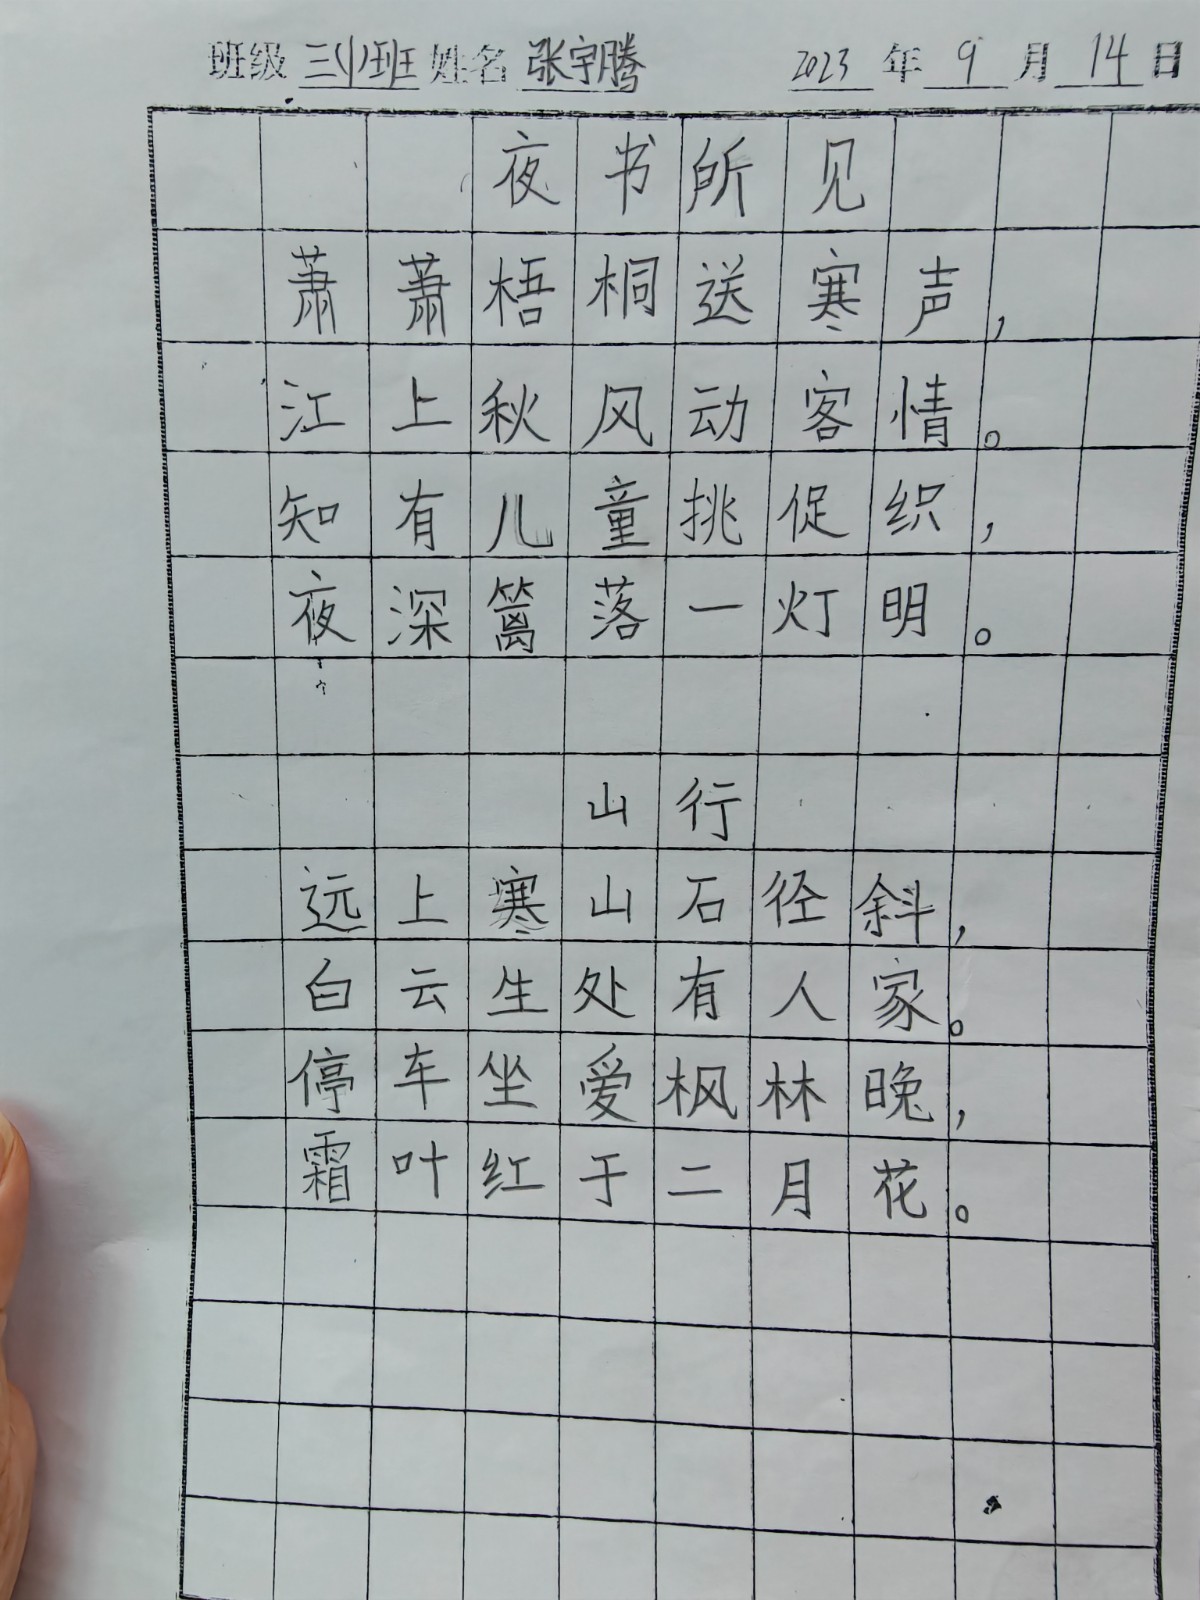 班级 三(1)班 姓名 张宇腾 2023 年 9 月 14 日
夜书所见
萧萧梧桐送寒声，
江上秋风动客情。
知有儿童挑促织，
夜深篱落一灯明。
山行
远上寒山石径斜，
白云生处有人家。
停车坐爱枫林晚，
霜叶红于二月花。